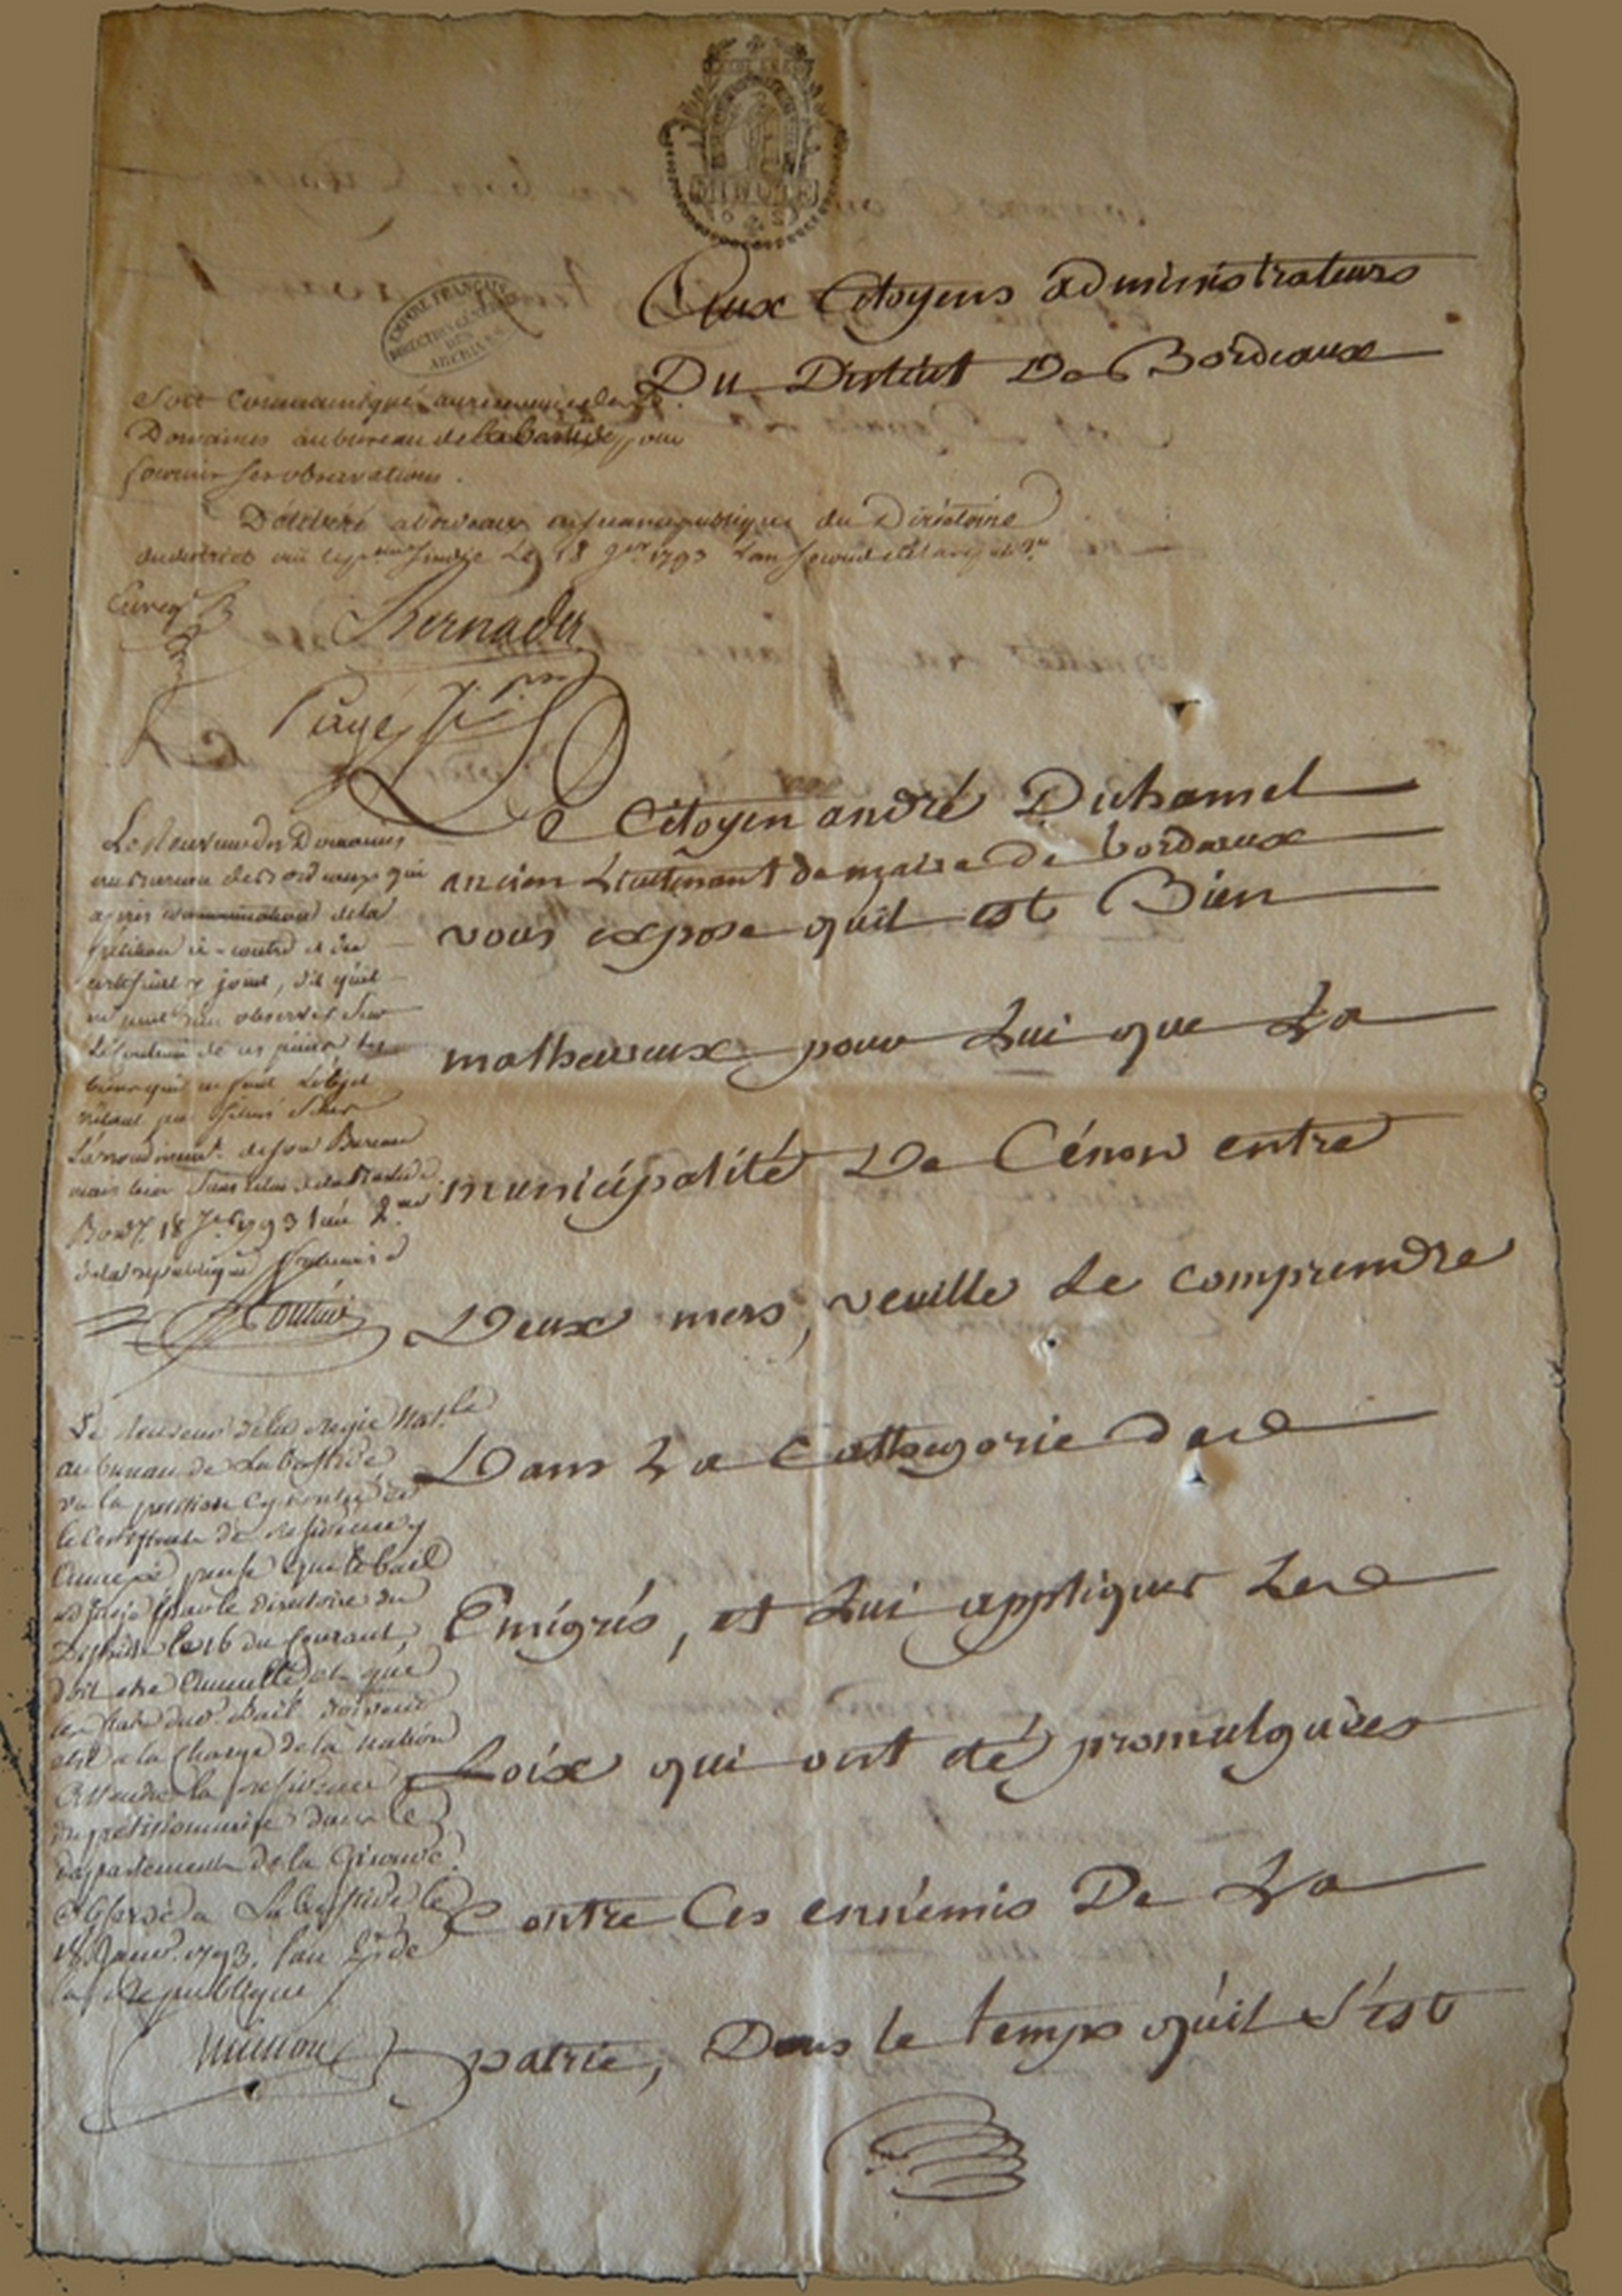 MINUTE
Aux Citoyens administrateurs
Du District De Bordeaux
EMPIRE FRANÇAIS
DIRECTION GÉNÉRALE
DES
ARCHIVES
Soit communiqué au receveur des
Domaines au bureau de la bastide pour
fournir ses observations.
Délibéré a bordeaux en seance publique du Directoire
du district oui le sindic Le 18 1793 Lan second de la
Bernada
Pagé
Le Citoyen andré Duhamel
ancien Lieutenant de maire de bordeaux
vous expose quil est Bien
malheureux pour Lui que La
municipalité De Cénon entre
Deux mers, veuille Le comprendre
Dans La Cathegorie des
Emigrés, et Lui appliquer Les
Loix qui ont été promulguées
Contre Ces ennemis De La
patrie, Dans le temps qu'il s'est
Le Receveur des Domaines
au bureau de Bordeaux qui
après de la
pétition ci-contre et du
certificat y joint, dit qu'il
ne peut rien observer sur
Le contenu de ces pièces les
biens qui en font L'objet
n'étant pas situés dans
L'arrondissement de son Bureau
mais bien dans celui de la Bastide
Bordx 18 1793 l'an 2me
de la république française
Le Receveur de la regie Natle
au bureau de Labastide
vu la petition cy contre et
le Certificat de residence y
annexé pense que le bail
adjugé par le directoire du
District le 16 du Courant,
doit etre annullé et que
les frais dud. Bail doivent
etre a la Charge de la nation
Attendu la residence
du petitionnaire dans le
departement de la Gironde.
observé a Labastide le
18 Janvr. 1793. l'an 2me de
la republique